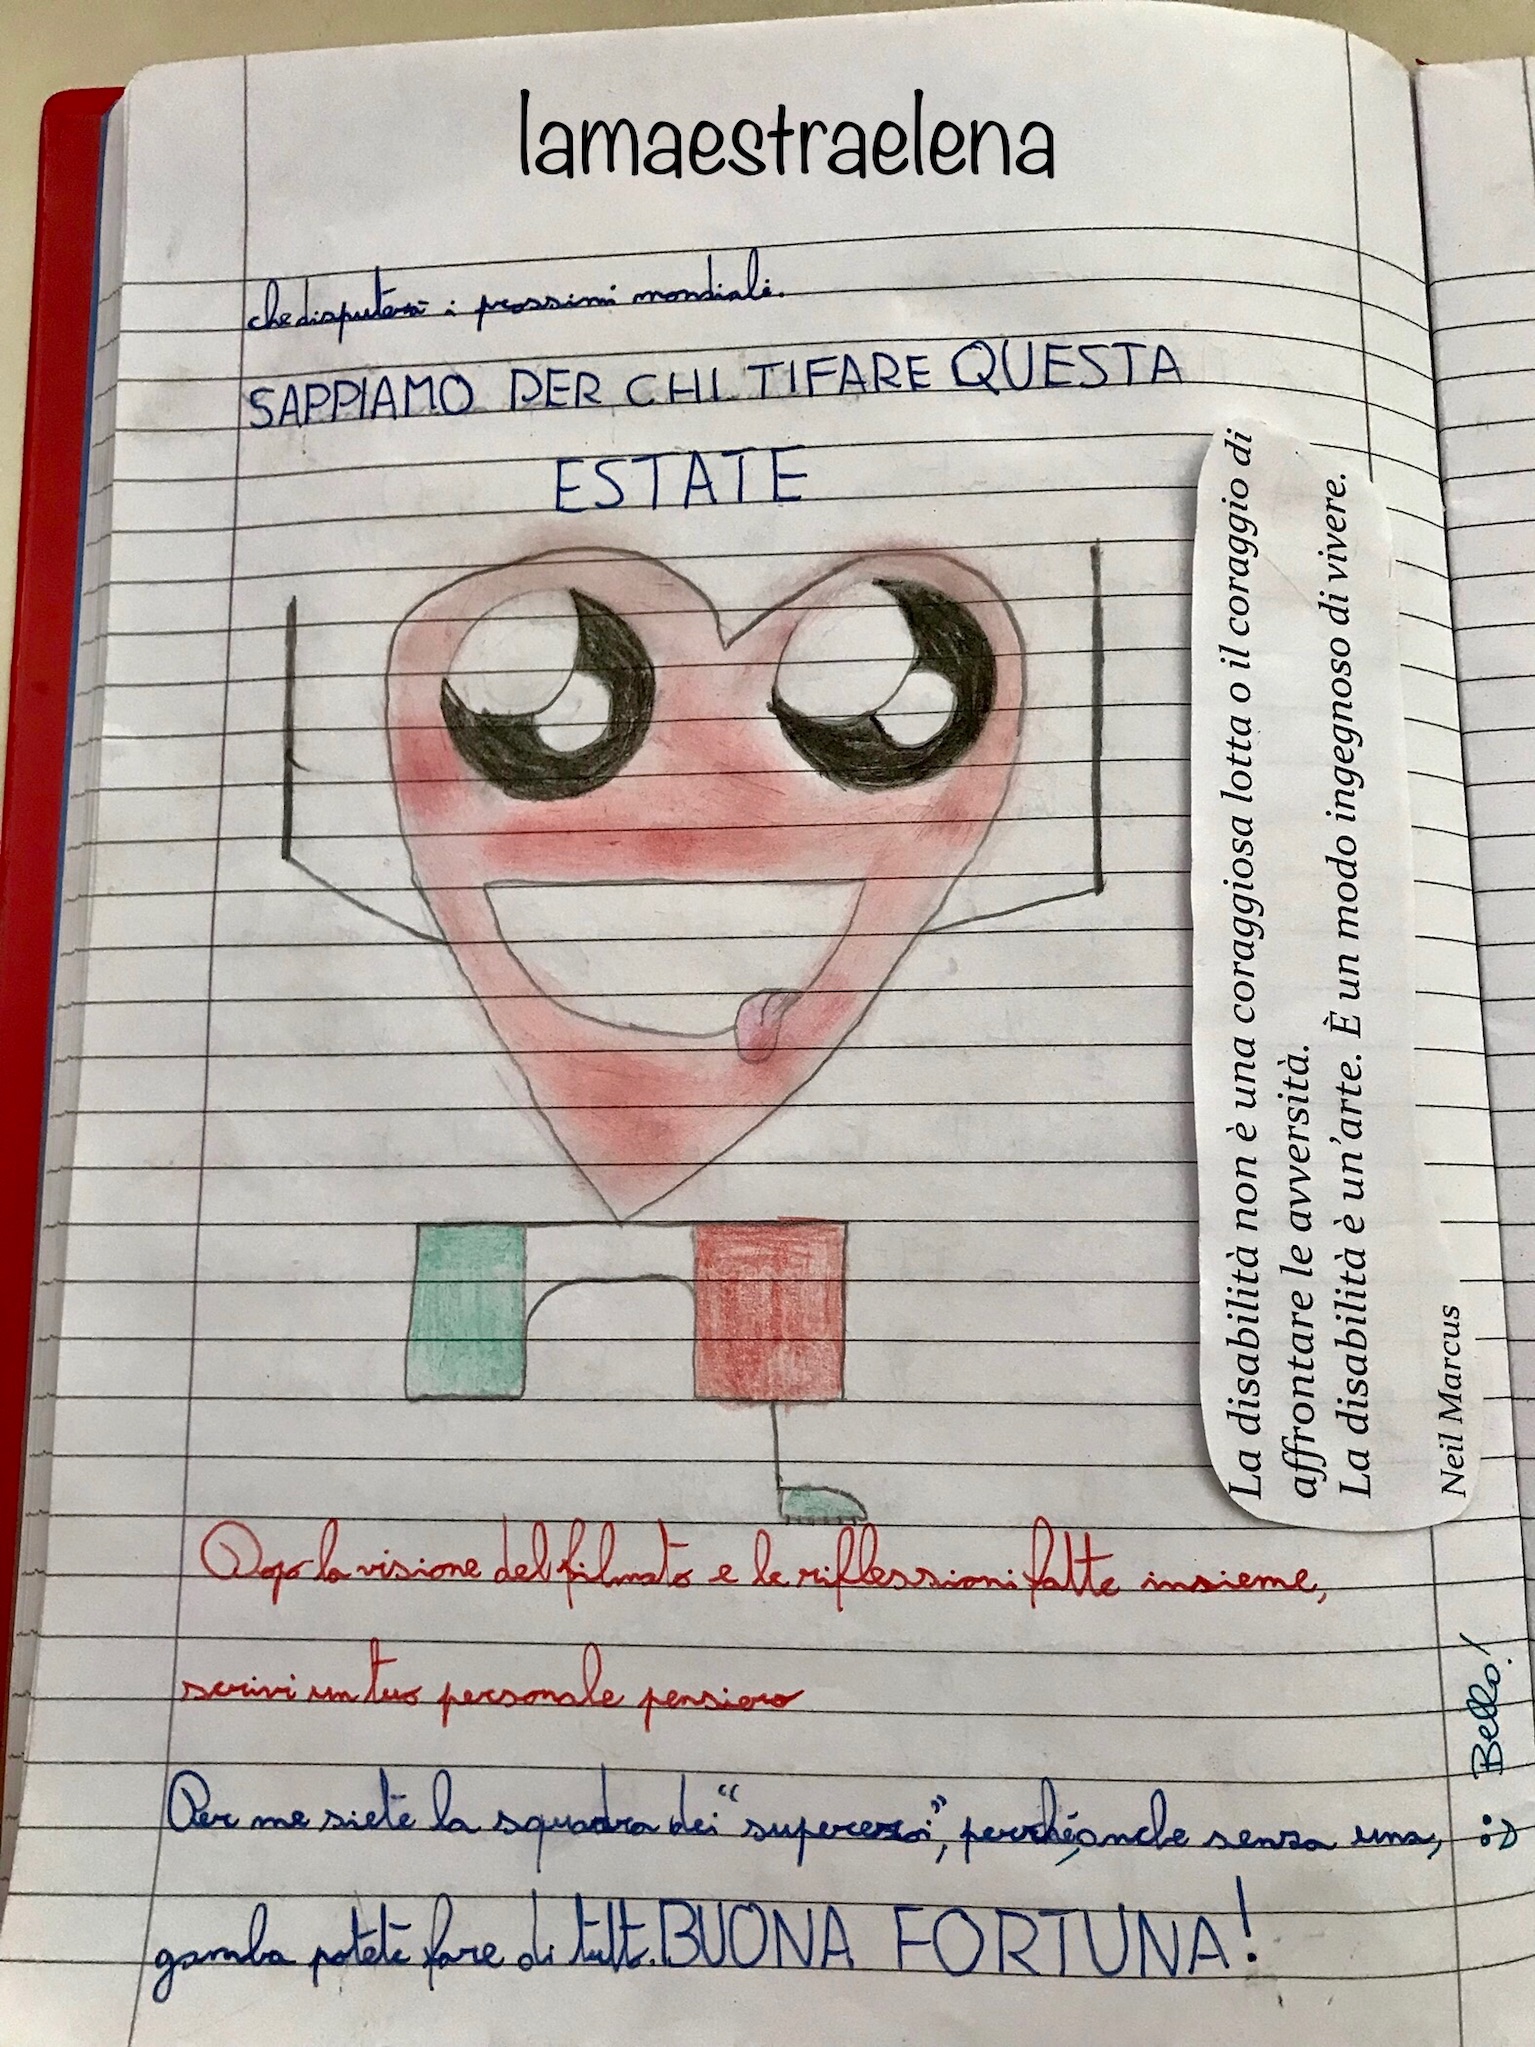 lamaestraelena
che disputerà i prossimi mondiali.
SAPPIAMO PER CHI TIFARE QUESTA
ESTATE
La disabilità non è una coraggiosa lotta o il coraggio di
affrontare le avversità.
La disabilità è un'arte. È un modo ingegnoso di vivere.
Neil Marcus
Dopo la visione del filmato e le riflessioni fatte insieme,
scrivi un tuo personale pensiero
Per me siete la squadra dei "supereroi", perché, anche senza una,
gamba potete fare di tutto. BUONA FORTUNA!
Bello! :)